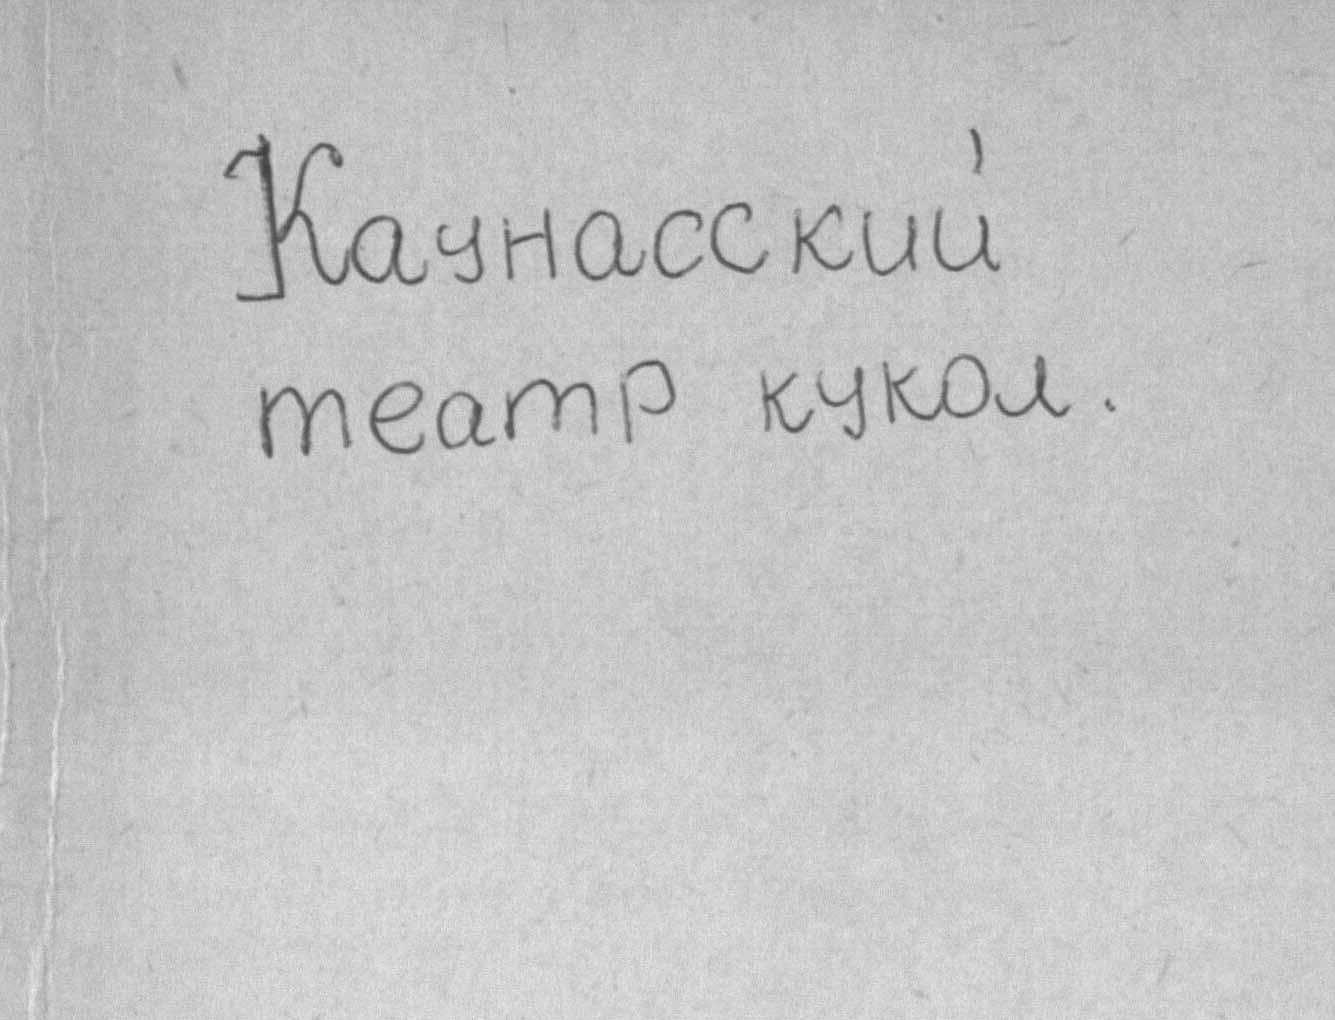 Каунасский
театр кукол.